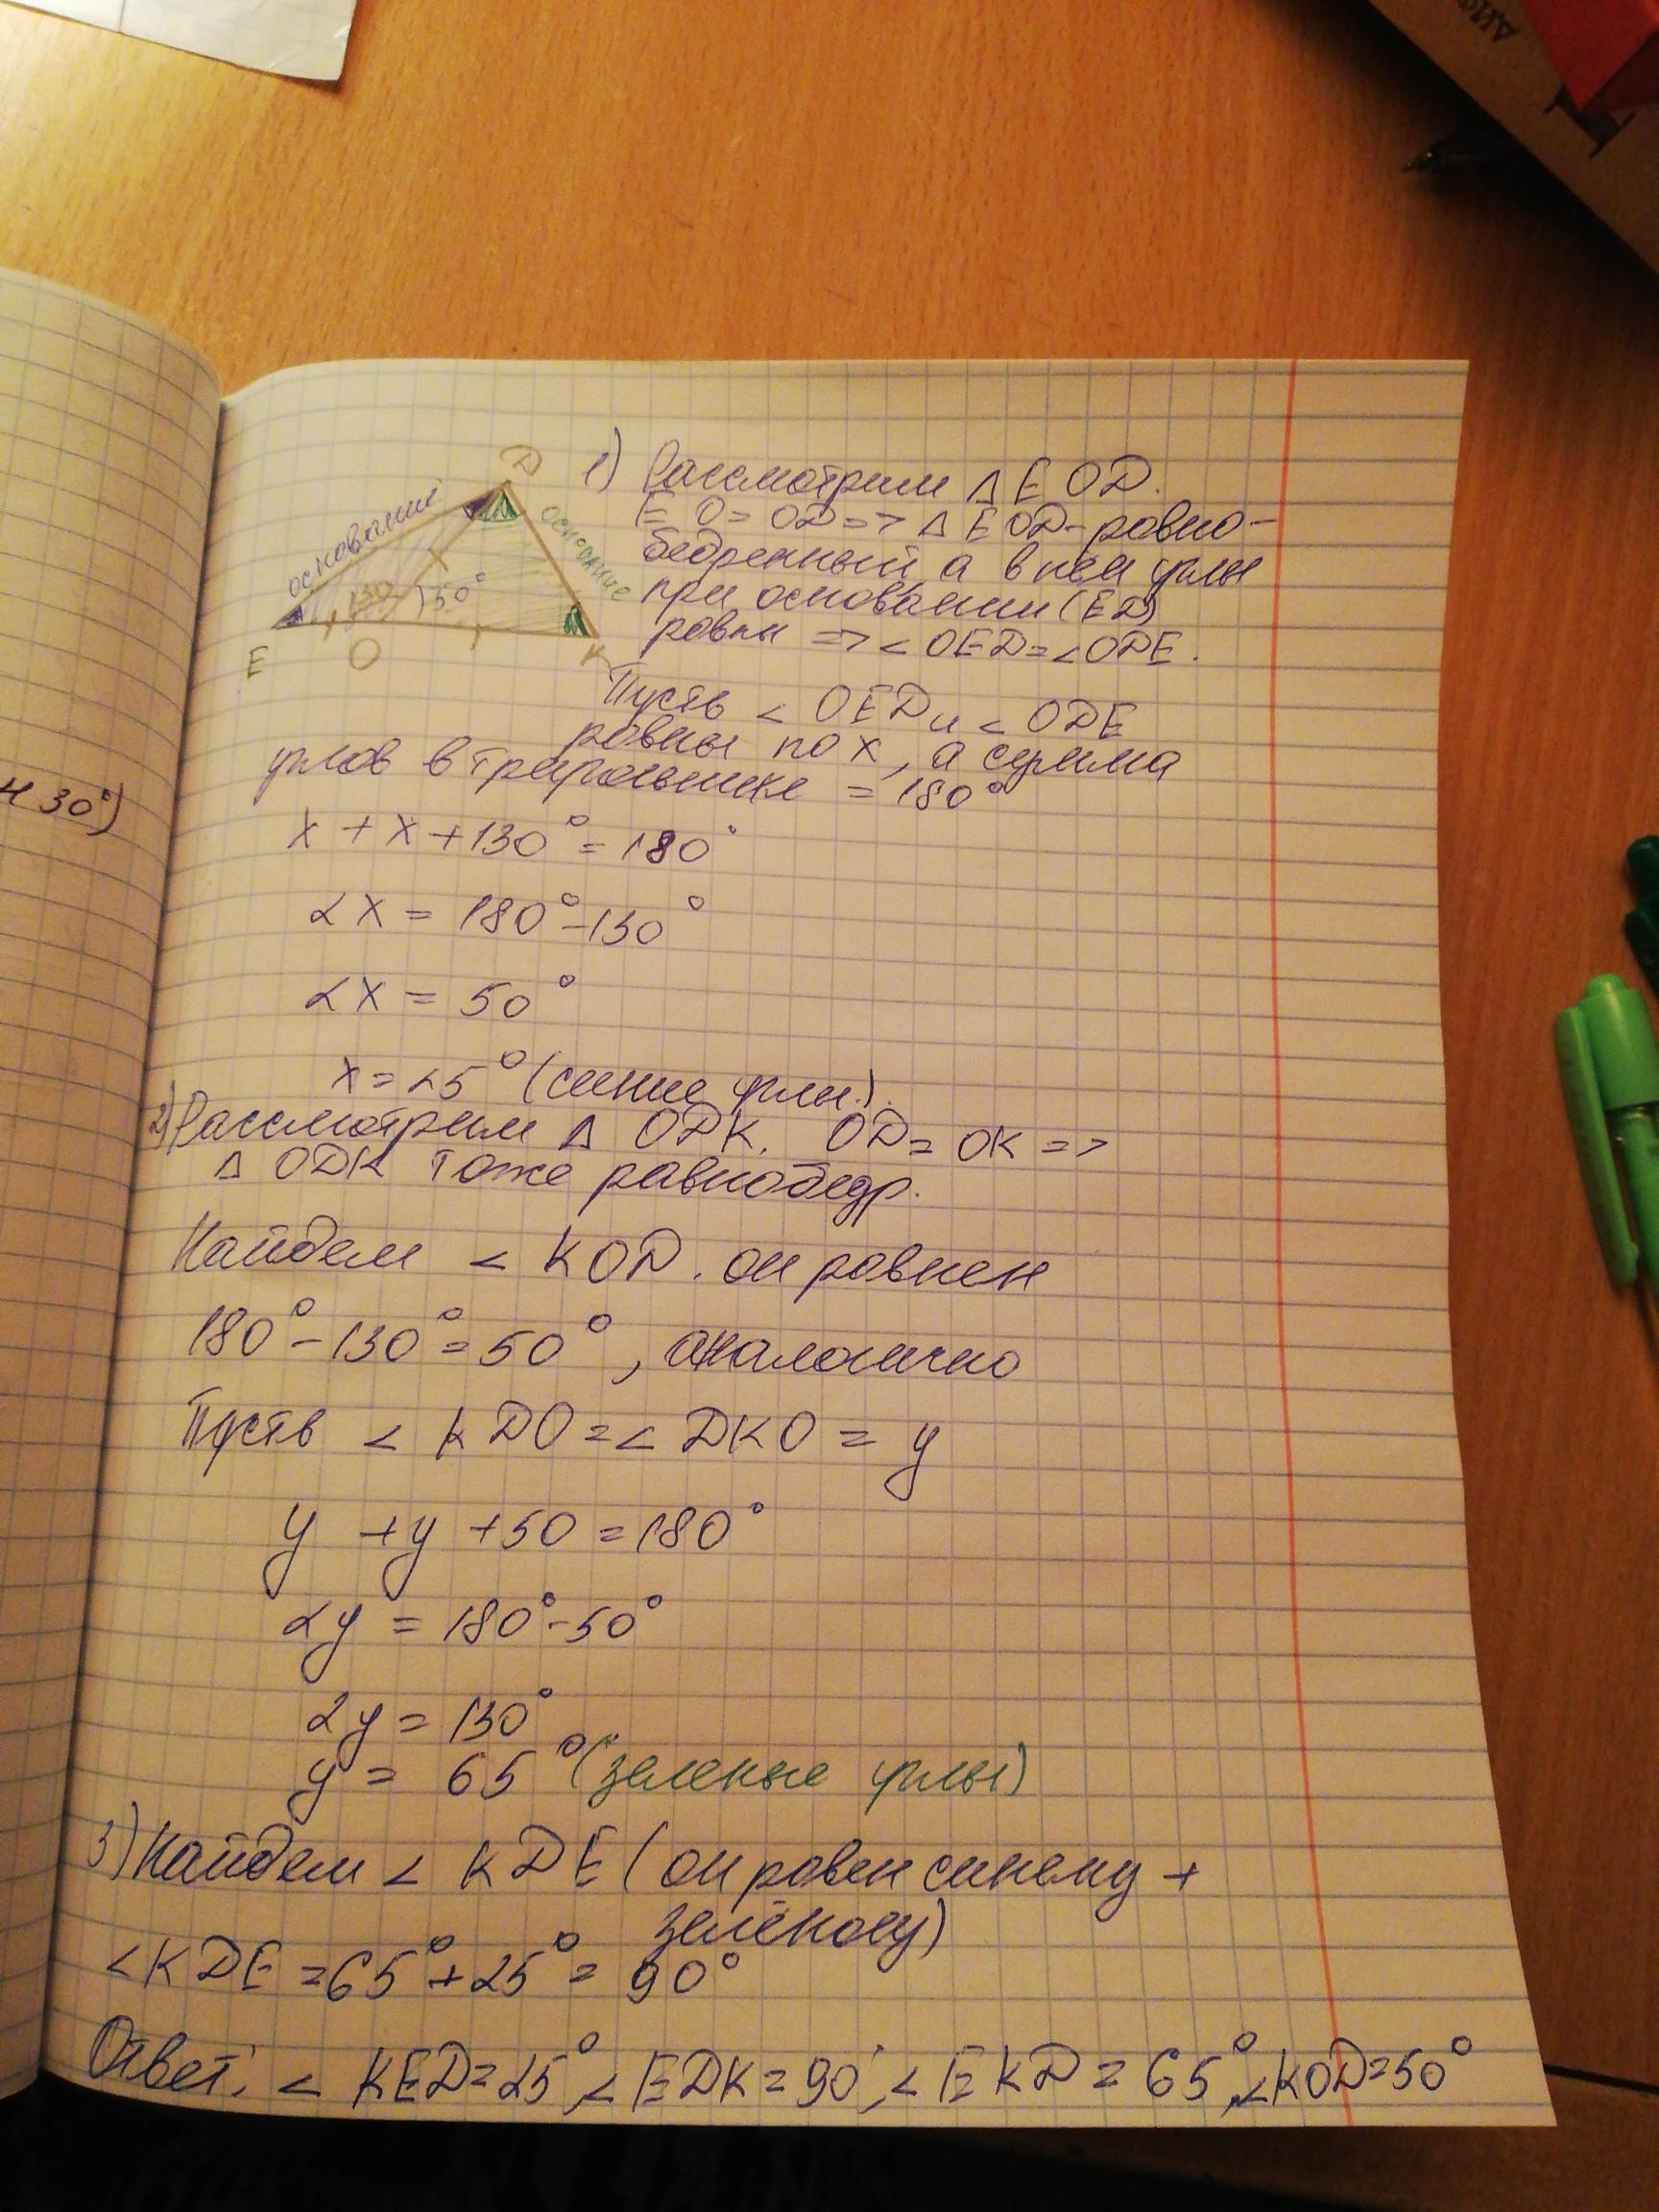 D
основание
основание
130
50°
E
O
K
1) Рассмотрим Δ EOD.
EO = OD => Δ EOD - равно-
бедренный, а в нем углы
при основании (ED)
равны => < OED = < ODE.
Пусть < OED и < ODE
равны по x, а сумма
углов в треугольнике = 180°
x + x + 130° = 180°
2x = 180° - 130°
2x = 50°
x = 25° (синие углы).
2) Рассмотрим Δ ODK. OD = OK =>
Δ ODK тоже равнобедр.
Найдем < KOD. он равен
180° - 130° = 50°, аналогично
Пусть < KDO = < DKO = y
y + y + 50 = 180°
2y = 180° - 50°
2y = 130°
y = 65° (зеленые углы)
3) Найдем < KDE (он равен синему +
зелёному)
< KDE = 65° + 25° = 90°
Ответ: < KED = 25°, < EDK = 90°, < EKD = 65°, < KOD = 50°
и 30°)